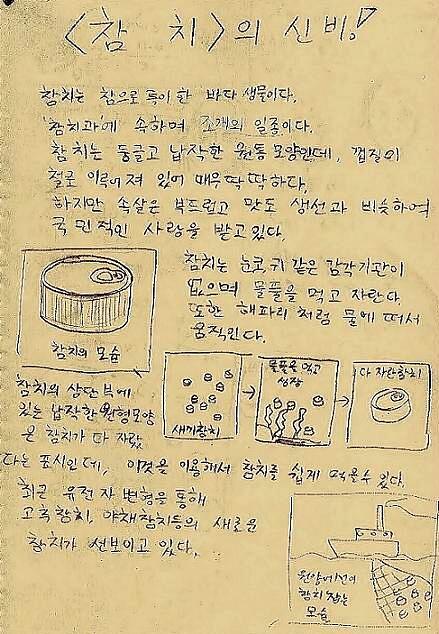 <참치>의 신비!
참치는 참으로 특이한 바다 생물이다.
'참치과'에 속하며 조개의 일종이다.
참치는 둥글고 납작한 원통 모양인데, 껍질이
철로 이루어져 있어 매우 딱딱하다.
하지만 속살은 부드럽고 맛도 생선과 비슷하여
국민적인 사랑을 받고 있다.
참치의 모습
참치는 눈코귀 같은 감각기관이
없으며 물풀을 먹고 자란다.
또한 해파리처럼 물에 떠서
움직인다.
새끼참치
물풀을 먹고
성장
다 자란참치
참치의 상단부에
있는 납작한 원형모양
은 참치가 다 자랐
다는 표시인데, 이것을 이용해서 참치를 쉽게 먹을수 있다.
최근 유전자 변형을 통해
고추참치, 야채참치등의 새로운
참치가 선보이고 있다.
원양어선이
참치 잡는
모습